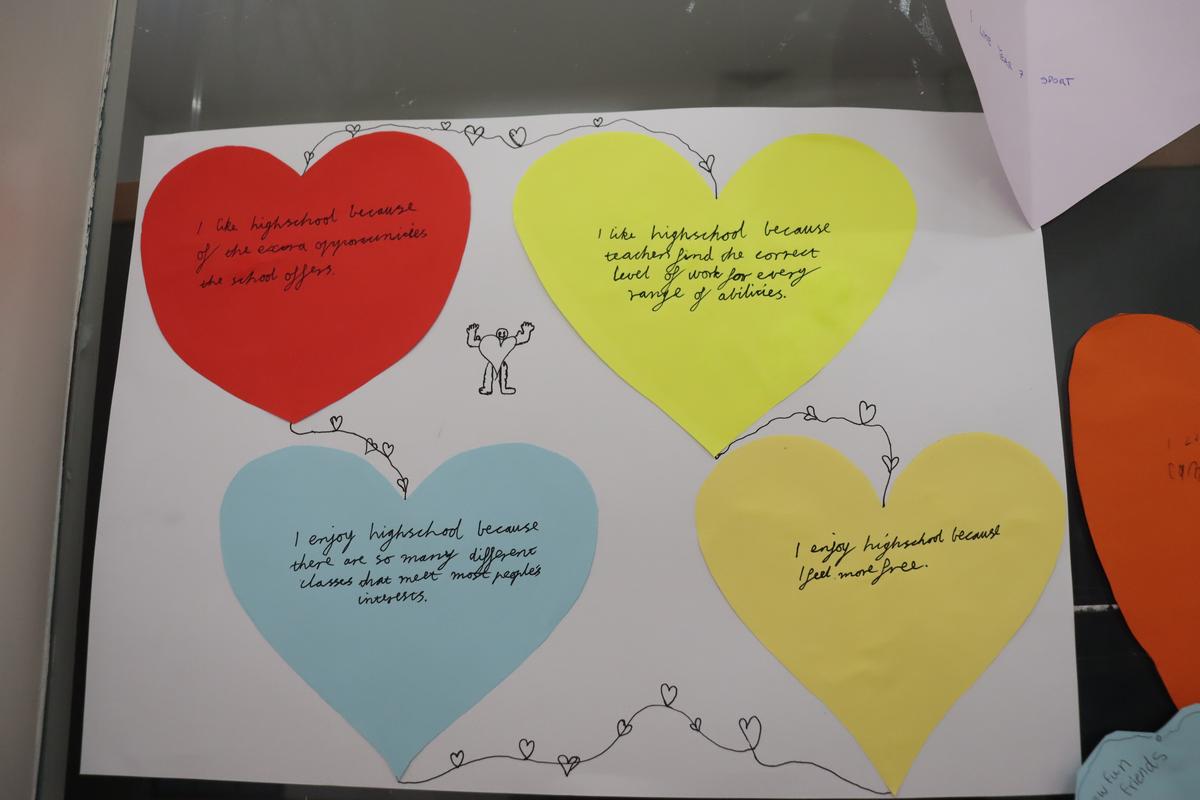 I like highschool because
of the extra opportunities
the school offers.
I like highschool because
teachers find the correct
level of work for every
range of abilities.
I enjoy highschool because
there are so many different
classes that meet most people's
interests.
I enjoy highschool because
I feel more free.
I like YEAR 7 SPORT
fun
friends